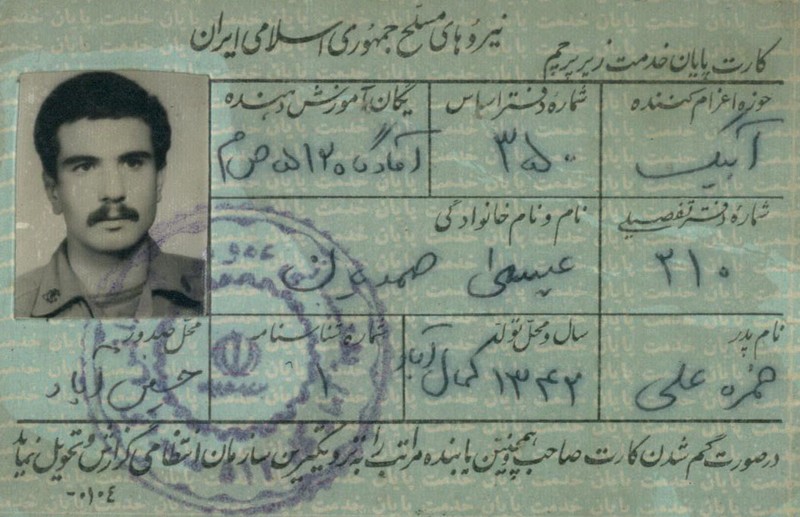 نیروهای مسلح جمهوری اسلامی ایران
کارت پایان خدمت زیر پرچم
حوزه اعزام کننده
آبیک
شماره دفتر اساس
۳۵۰
یگان آموزش دهنده
آمادگاه ۵۱۲ ص م
شماره دفتر تفصیلی
۲۱۰
نام و نام خانوادگی
عیسی صمدیان
نام پدر
حمزه علی
سال و محل تولد
۱۳۴۲ کمال آباد
شماره شناسنامه
۱
محل صدور
حسین آباد
در صورت گم شدن کارت صاحب و همچنین یابنده مراتب را به نزدیکترین سازمان انتظامی گزارش و تحویل نماید
۰۱۰۴-